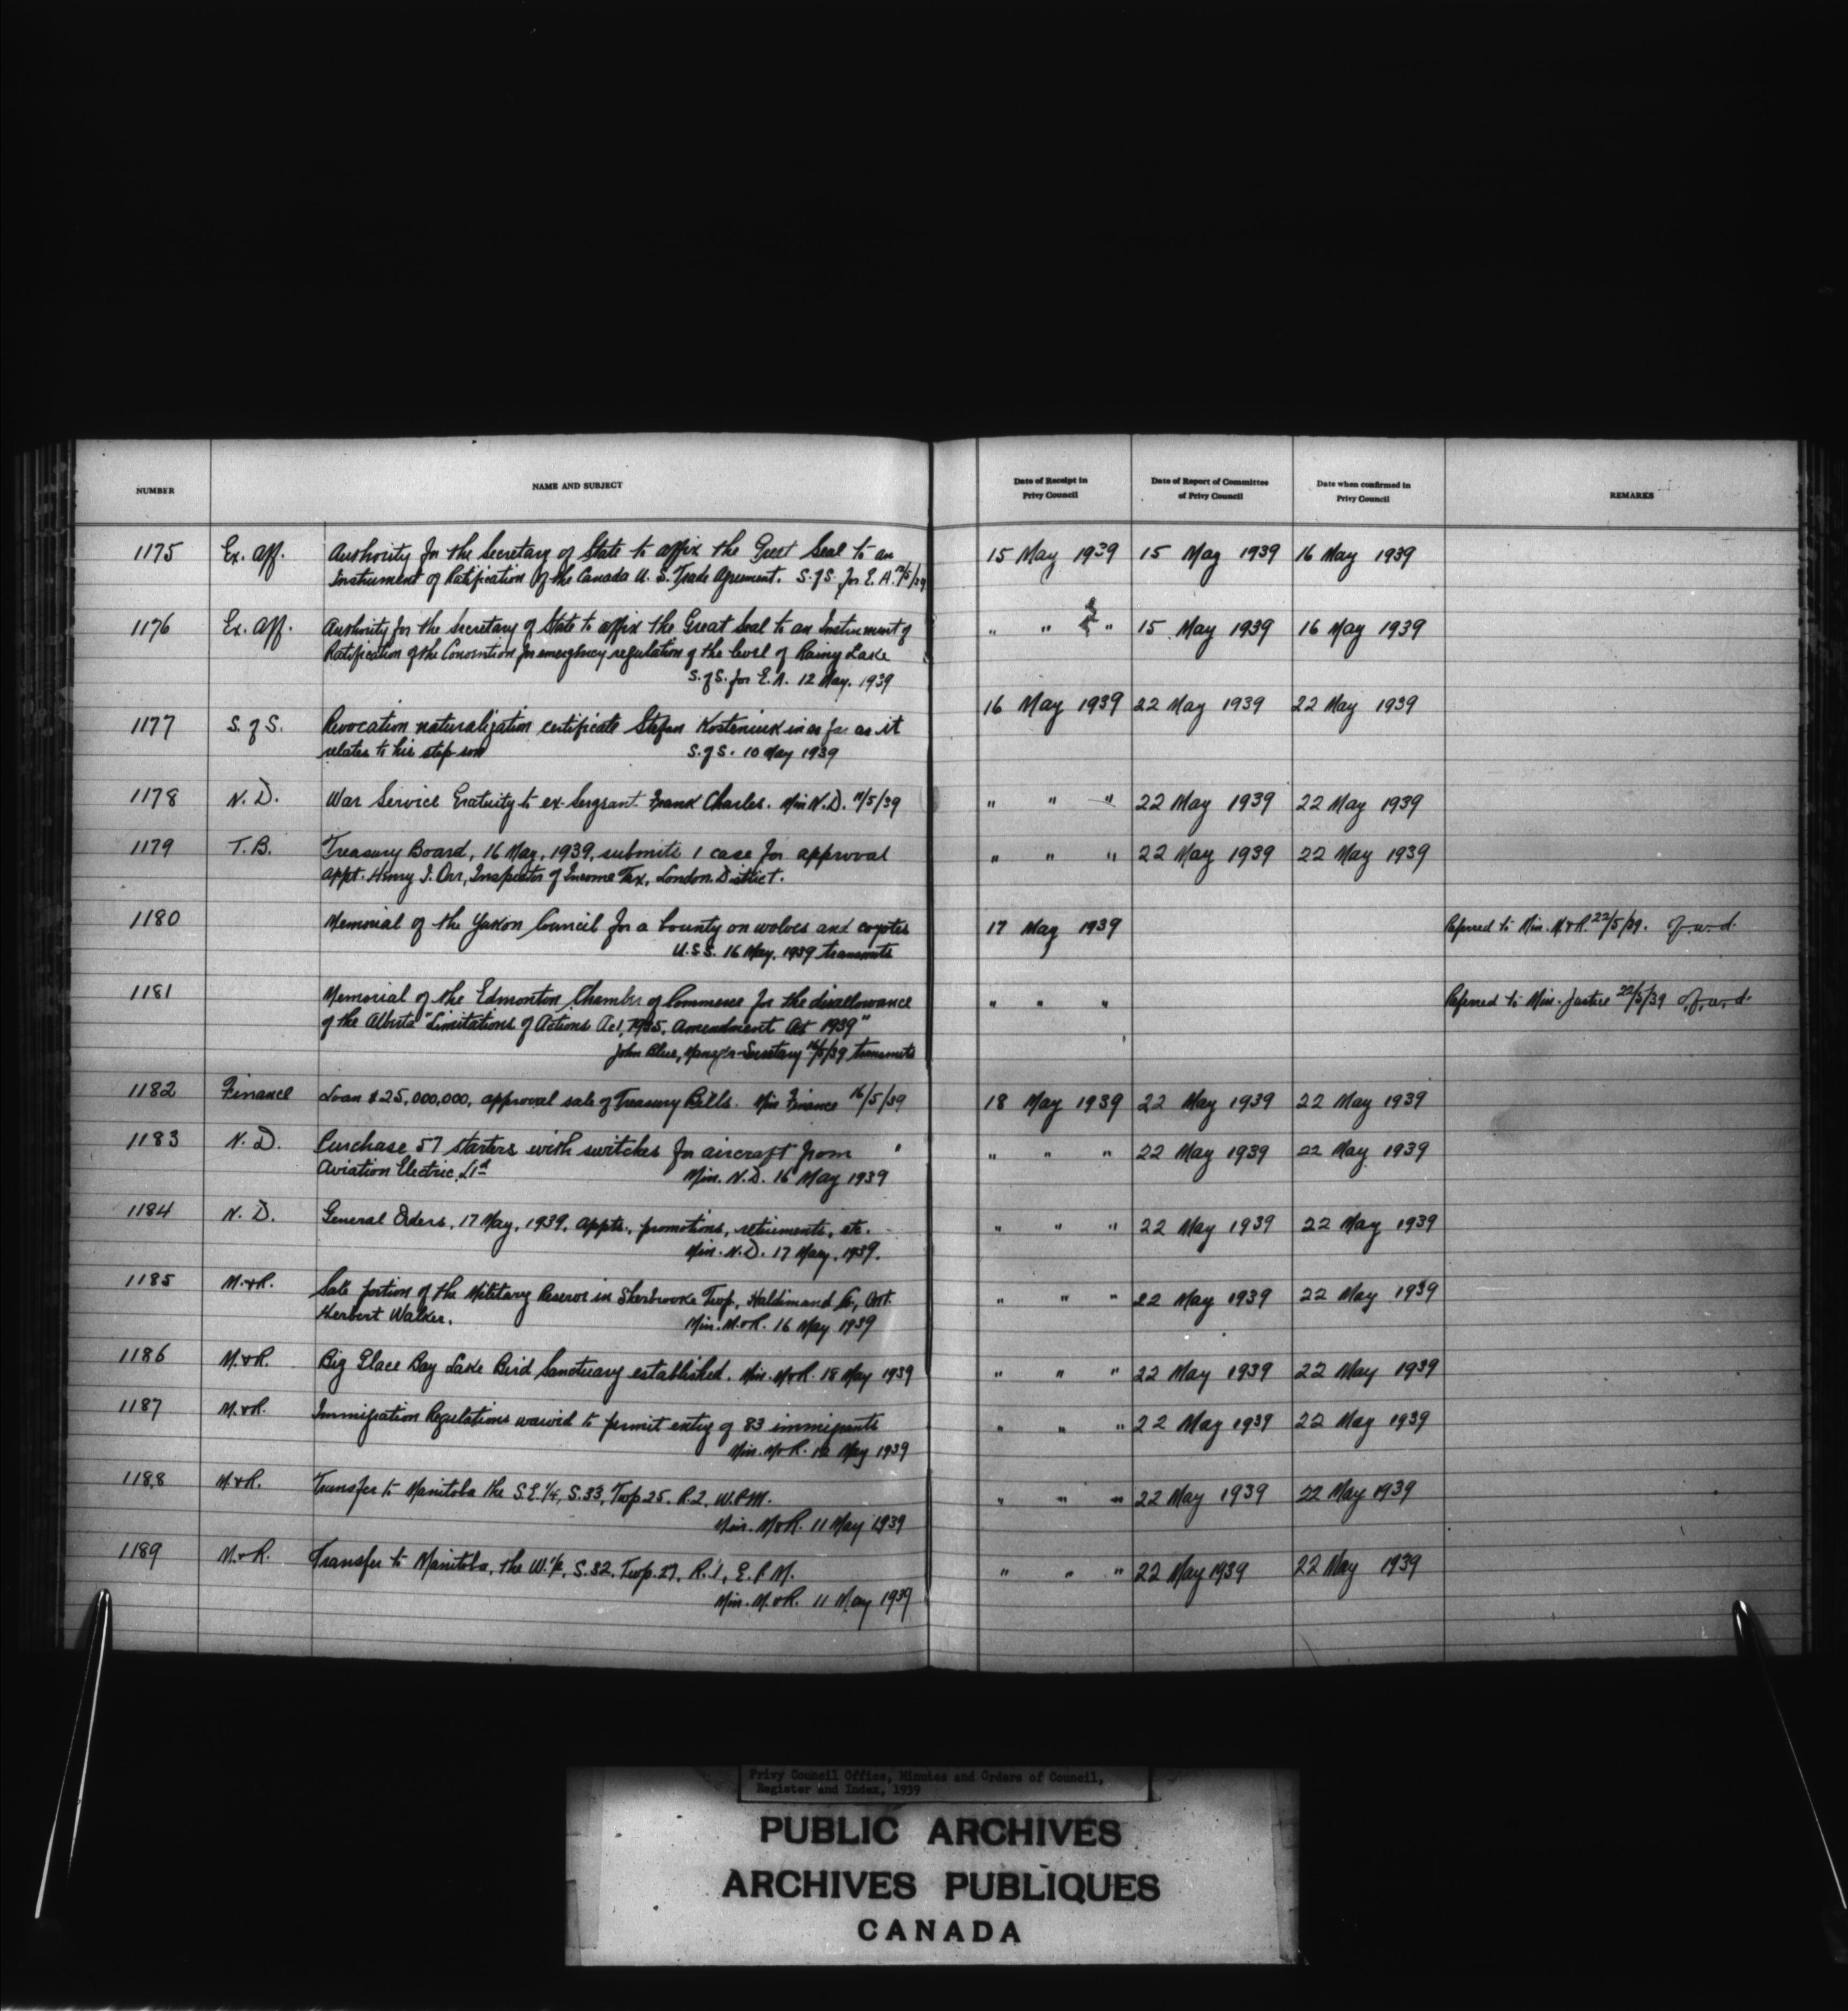 NUMBER NAME AND SUBJECT Date of Receipt in Privy Council Date of Report of Committee of Privy Council Date when confirmed in Privy Council REMARKS
1175 Ex. Aff. Authority for the Secretary of State to affix the Great Seal to an 15 May 1939 15 May 1939 16 May 1939
Instrument of Ratification of the Canada U.S. Trade Agreement. S. of S. for E.A. /5/39
1176 Ex. Aff. Authority for the Secretary of State to affix the Great Seal to an Instrument of " " " 15 May 1939 16 May 1939
Ratification of the Convention for emergency regulation of the level of Rainy Lake
S. of S. for E.A. 12 May. 1939
16 May 1939 22 May 1939 22 May 1939
1177 S. of S. Revocation naturalization certificate Stefan Kosteniuk in as far as it
relates to his step son S. of S. 10 May 1939
1178 N. D. War Service Gratuity to ex-Sergeant Frank Charles. Min N.D. /5/39 " " " 22 May 1939 22 May 1939
1179 T. B. Treasury Board, 16 May, 1939, submits 1 case for approval " " " 22 May 1939 22 May 1939
appt. Henry J. Orr, Inspector of Income Tax, London District.
1180 Memorial of the Yukon Council for a bounty on wolves and coyotes 17 May 1939 Referred to Min. M.&R. 22/5/39. of.w.d.
U.S.S. 16 May, 1939 transmits
1181 Memorial of the Edmonton Chamber of Commerce for the disallowance " " " Referred to Min. Justice 22/5/39 of.w.d.
of the Alberta "Limitations of Actions Act, 1935, Amendment Act 1939"
John Blue, Manager-Secretary 16/5/39 transmits
1182 Finance Loan $25,000,000, approval sale of Treasury Bills. Min Finance 16/5/39 18 May 1939 22 May 1939 22 May 1939
1183 N. D. Purchase 57 starters with switches for aircraft from " " " 22 May 1939 22 May 1939
Aviation Electric Ltd Min. N.D. 16 May 1939
1184 N. D. General Orders, 17 May, 1939, appts., promotions, retirements, etc. " " " 22 May 1939 22 May 1939
Min. N.D. 17 May, 1939.
1185 M.&R. Sale portion of the Military Reserve in Sherbrooke Twp, Haldimand Co., Ont. " " " 22 May 1939 22 May 1939
Herbert Walker. Min. M.&R. 16 May 1939
1186 M.&R. Big Glace Bay Lake Bird Sanctuary established. Min. M&R. 18 May 1939 " " " 22 May 1939 22 May 1939
1187 M.&R. Immigration Regulations waived to permit entry of 83 immigrants " " " 22 May 1939 22 May 1939
Min. M&R. May 1939
1188 M.&R. Transfer to Manitoba the S.E.1/4, S.33, Twp 25, R.2, W.P.M. " " " 22 May 1939 22 May 1939
Min. M&R. 11 May 1939
1189 M.&R. Transfer to Manitoba, the W.1/2, S.32, Twp. 27, R.1, E.P.M. " " " 22 May 1939 22 May 1939
Min. M.&R. 11 May 1939
Privy Council Office, Minutes and Orders of Council,
Register and Index, 1939
PUBLIC ARCHIVES
ARCHIVES PUBLIQUES
CANADA